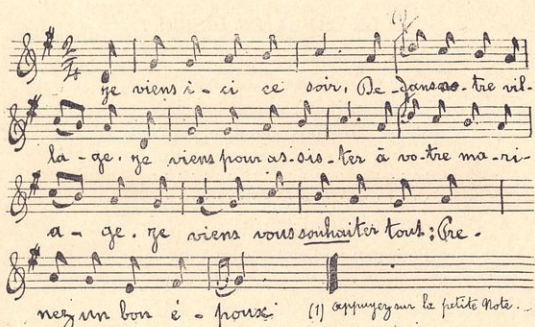 2/4
(1)
Je viens i-ci ce soir, De-dans no-tre vil-
la-ge. Je viens pour as-sis-ter à vo-tre ma-ri-
a-ge. Je viens vous souhaiter tout; Pre-
nez un bon é-poux (1) appuyez sur la petite Note.